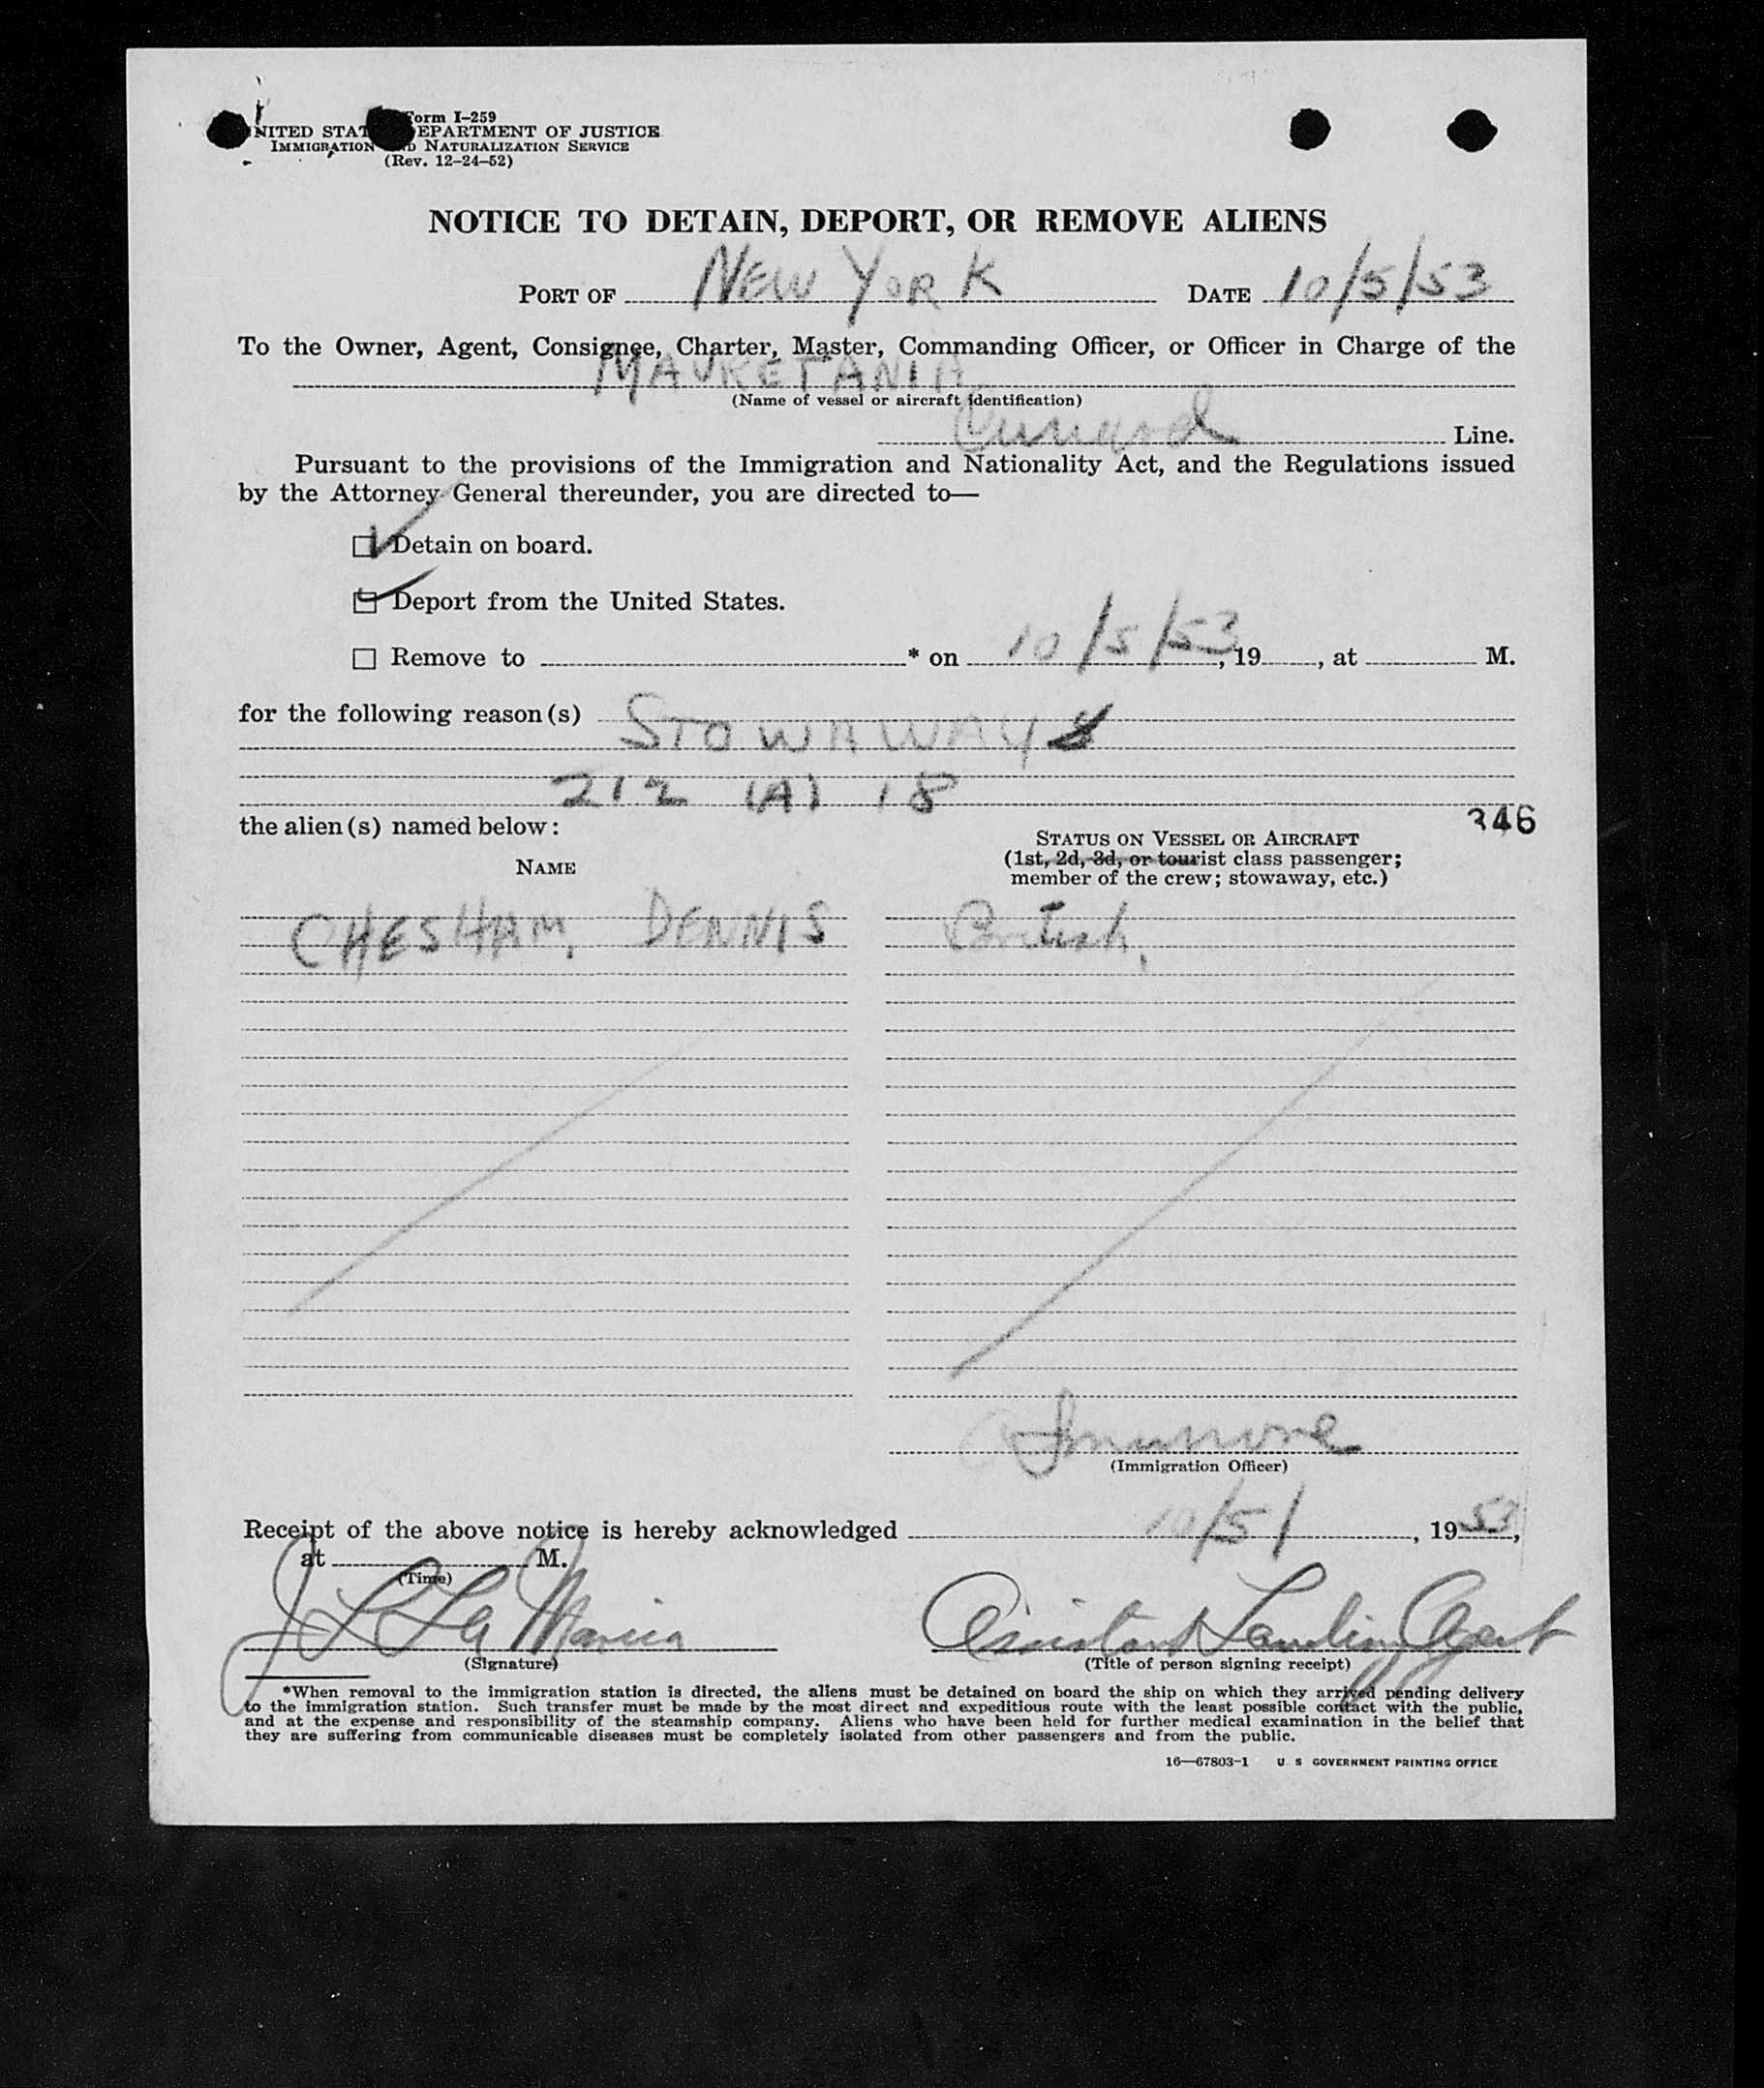 Form I-259
UNITED STATES DEPARTMENT OF JUSTICE
IMMIGRATION AND NATURALIZATION SERVICE
(Rev. 12-24-52)
NOTICE TO DETAIN, DEPORT, OR REMOVE ALIENS
PORT OF NEW YORK DATE 10/5/53
To the Owner, Agent, Consignee, Charter, Master, Commanding Officer, or Officer in Charge of the
MAURETANIA
(Name of vessel or aircraft identification)
Cunard Line.
Pursuant to the provisions of the Immigration and Nationality Act, and the Regulations issued
by the Attorney General thereunder, you are directed to—
Detain on board.
Deport from the United States.
Remove to * on 10/5/53, 19 , at M.
for the following reason(s) STOWAWAY
212 (A) 18
346
the alien(s) named below:
NAME
STATUS ON VESSEL OR AIRCRAFT
(1st, 2d, 3d, or tourist class passenger;
member of the crew; stowaway, etc.)
CHESHAM, DENNIS British,
(Immigration Officer)
Receipt of the above notice is hereby acknowledged 10/5/ , 1953,
at M.
(Time)
Assistant Landing Agent
(Signature) (Title of person signing receipt)
*When removal to the immigration station is directed, the aliens must be detained on board the ship on which they arrived pending delivery
to the immigration station. Such transfer must be made by the most direct and expeditious route with the least possible contact with the public,
and at the expense and responsibility of the steamship company. Aliens who have been held for further medical examination in the belief that
they are suffering from communicable diseases must be completely isolated from other passengers and from the public.
16—67803-1 U. S. GOVERNMENT PRINTING OFFICE